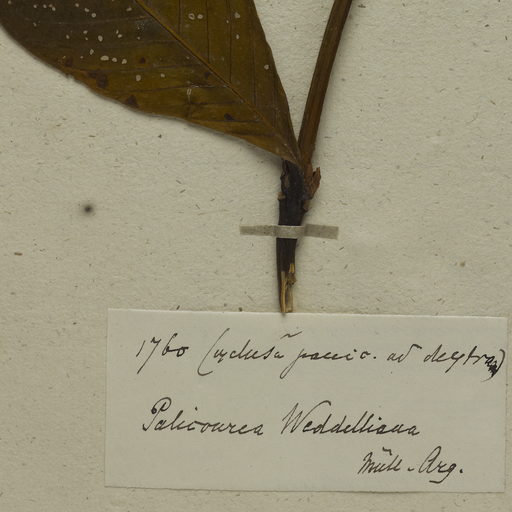 1760 (exclusâ panic. ad dextram)
Palicourea Weddelliana
Müll-Arg.